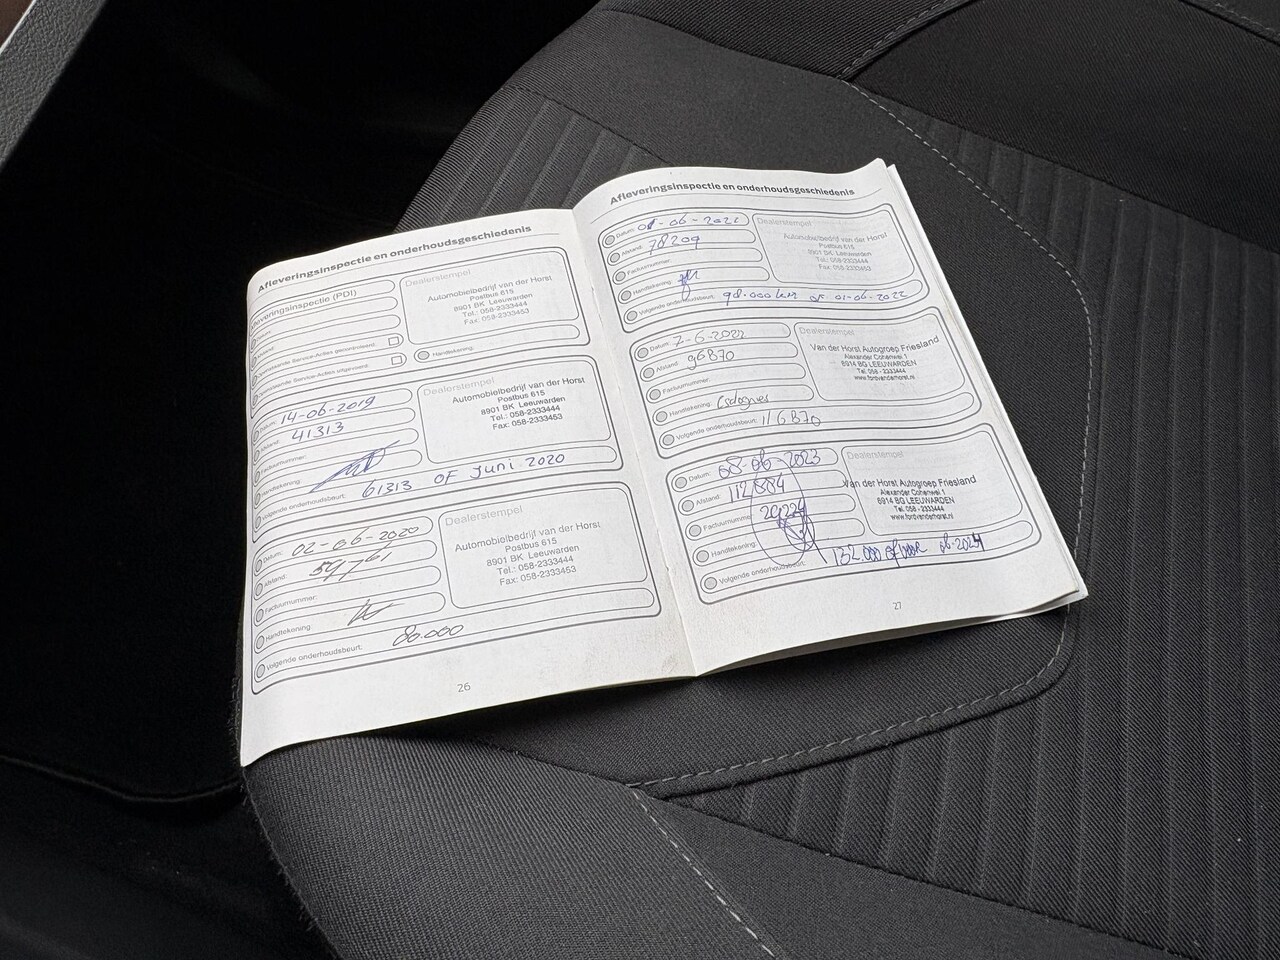 Afleveringsinspectie en onderhoudsgeschiedenis
Afleveringsinspectie (PDI)
Dealerstempel
Automobielbedrijf van der Horst
Postbus 615
8901 BK Leeuwarden
Tel.: 058-2333444
Fax: 058-2333453
Handtekening:
Datum: 14-06-2019
Afstand: 41313
Factuurnummer:
Handtekening:
Volgende onderhoudsbeurt: 61313 OF Juni 2020
Dealerstempel
Automobielbedrijf van der Horst
Postbus 615
8901 BK Leeuwarden
Tel.: 058-2333444
Fax: 058-2333453
Datum: 02-06-2020
Afstand: 59761
Factuurnummer:
Handtekening:
Volgende onderhoudsbeurt: 80.000
Dealerstempel
Automobielbedrijf van der Horst
Postbus 615
8901 BK Leeuwarden
Tel.: 058-2333444
Fax: 058-2333453
26
Afleveringsinspectie en onderhoudsgeschiedenis
Datum:
Afstand: 78209
Factuurnummer:
Handtekening:
Volgende onderhoudsbeurt: 98.000km of 01-06-2022
Dealerstempel
Automobielbedrijf van der Horst
Postbus 615
8901 BK Leeuwarden
Tel.: 058-2333444
Fax: 058-2333453
Datum: 7-6-2022
Afstand: 96870
Factuurnummer:
Handtekening:
Volgende onderhoudsbeurt: 116870
Dealerstempel
Van der Horst Autogroep Friesland
Alexander Cohenwei 1
8914 BG LEEUWARDEN
Tel. 058 - 2333444
www.fordvanderhorst.nl
Datum: 08-06-2023
Afstand:
Factuurnummer:
Handtekening:
Volgende onderhoudsbeurt: 132.000 of voor 06-2024
Dealerstempel
Van der Horst Autogroep Friesland
Alexander Cohenwei 1
8914 BG LEEUWARDEN
Tel. 058 - 2333444
www.fordvanderhorst.nl
27